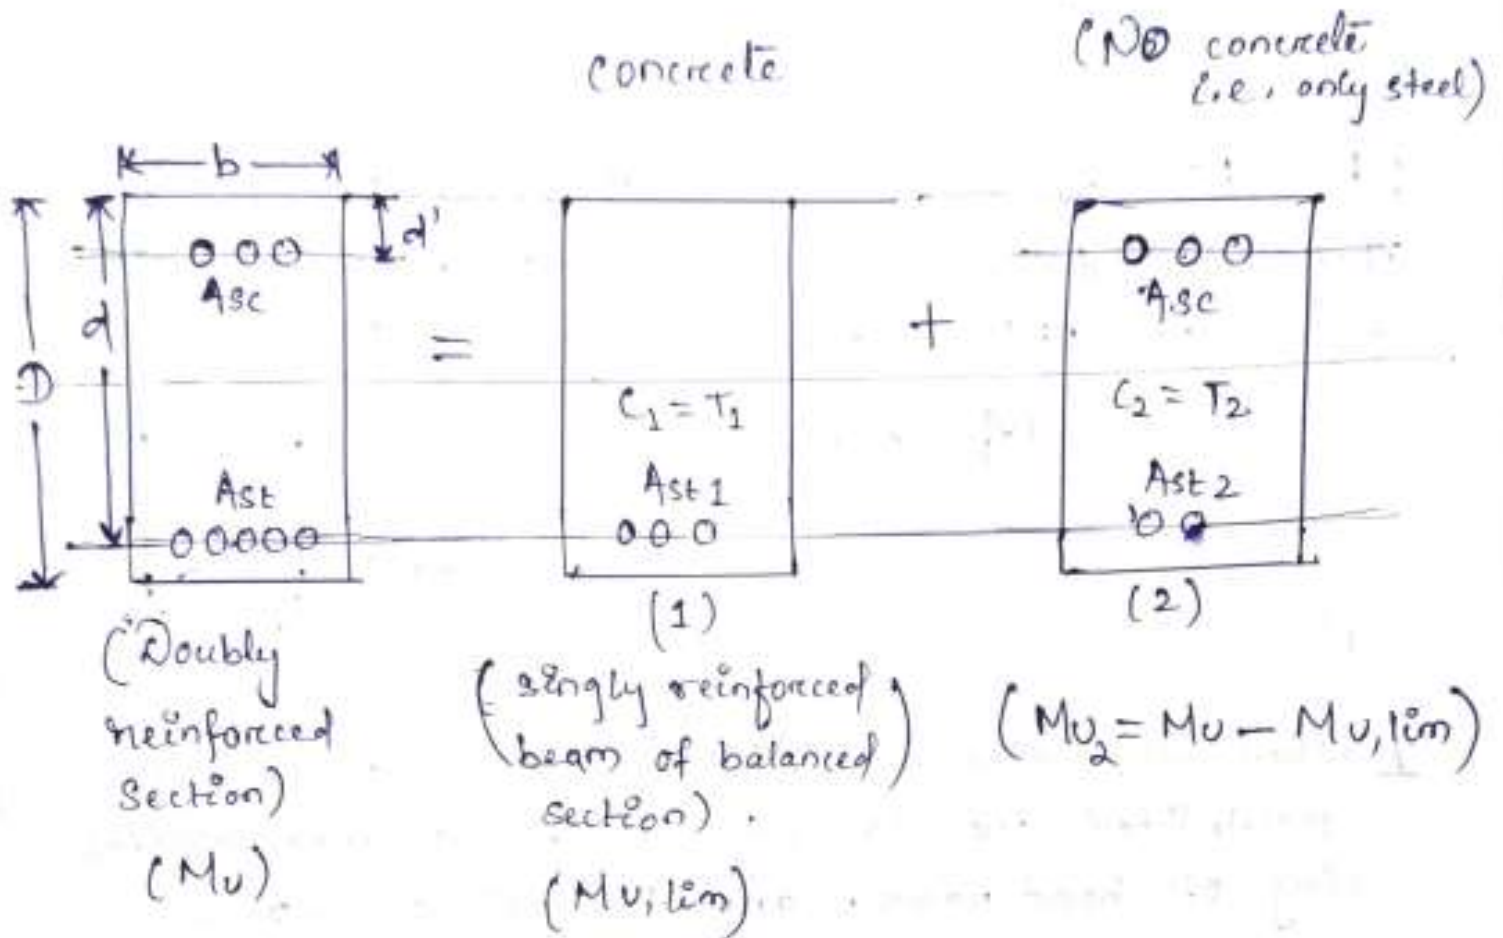 concrete
(NO concrete
i.e. only steel)
b
d'
Asc
d
D
=
Ast
C₁ = T₁
Ast 1
+
Asc
C₂ = T₂
Ast 2
(Doubly
reinforced
Section)
(Mu)
(1)
(singly reinforced
beam of balanced
section).
(Mu, lim).
(2)
(Mu₂ = Mu - Mu, lim)